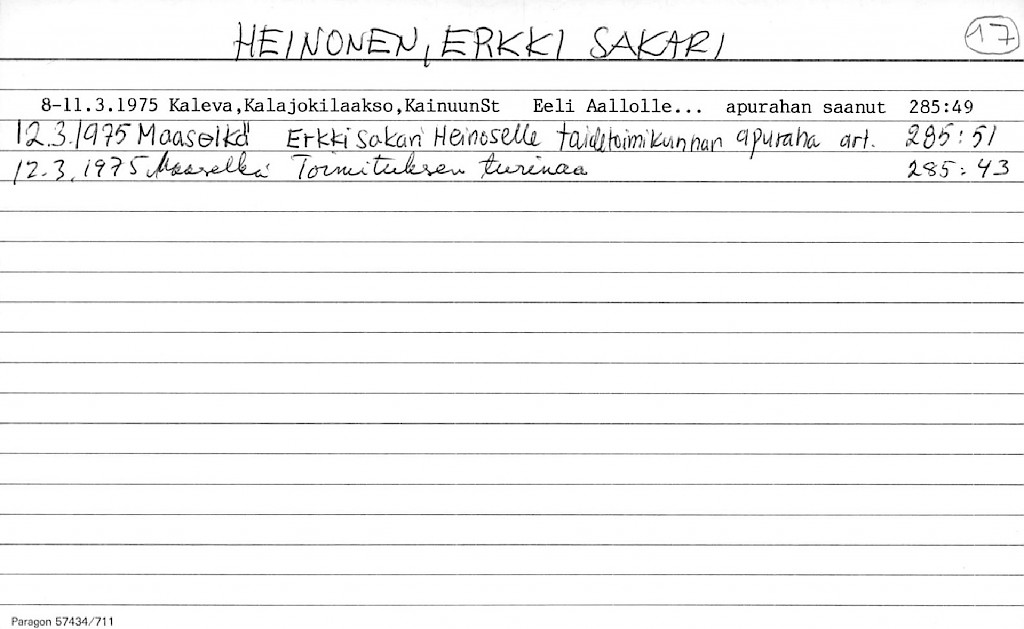 HEINONEN, ERKKI SAKARI 17
8-11.3.1975 Kaleva,Kalajokilaakso,KainuunSt Eeli Aallolle... apurahan saanut 285:49
12.3.1975 Maaselkä Erkki Sakari Heinoselle taidetoimikunnan apuraha art. 285:51
12.3.1975 Maaselkä Toimituksen turinaa 285:43
Paragon 57434/711